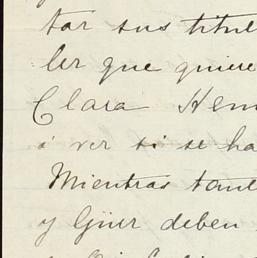 tar sus titul
ler que quiere
Clara Hem
á ver si se ha
Mientras tant
y Güer deben